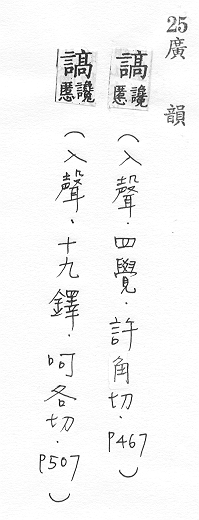 25廣韻
謞讒慝(入聲.四覺.許角切.P467)
謞讒慝(入聲.十九鐸.呵各切.P507)